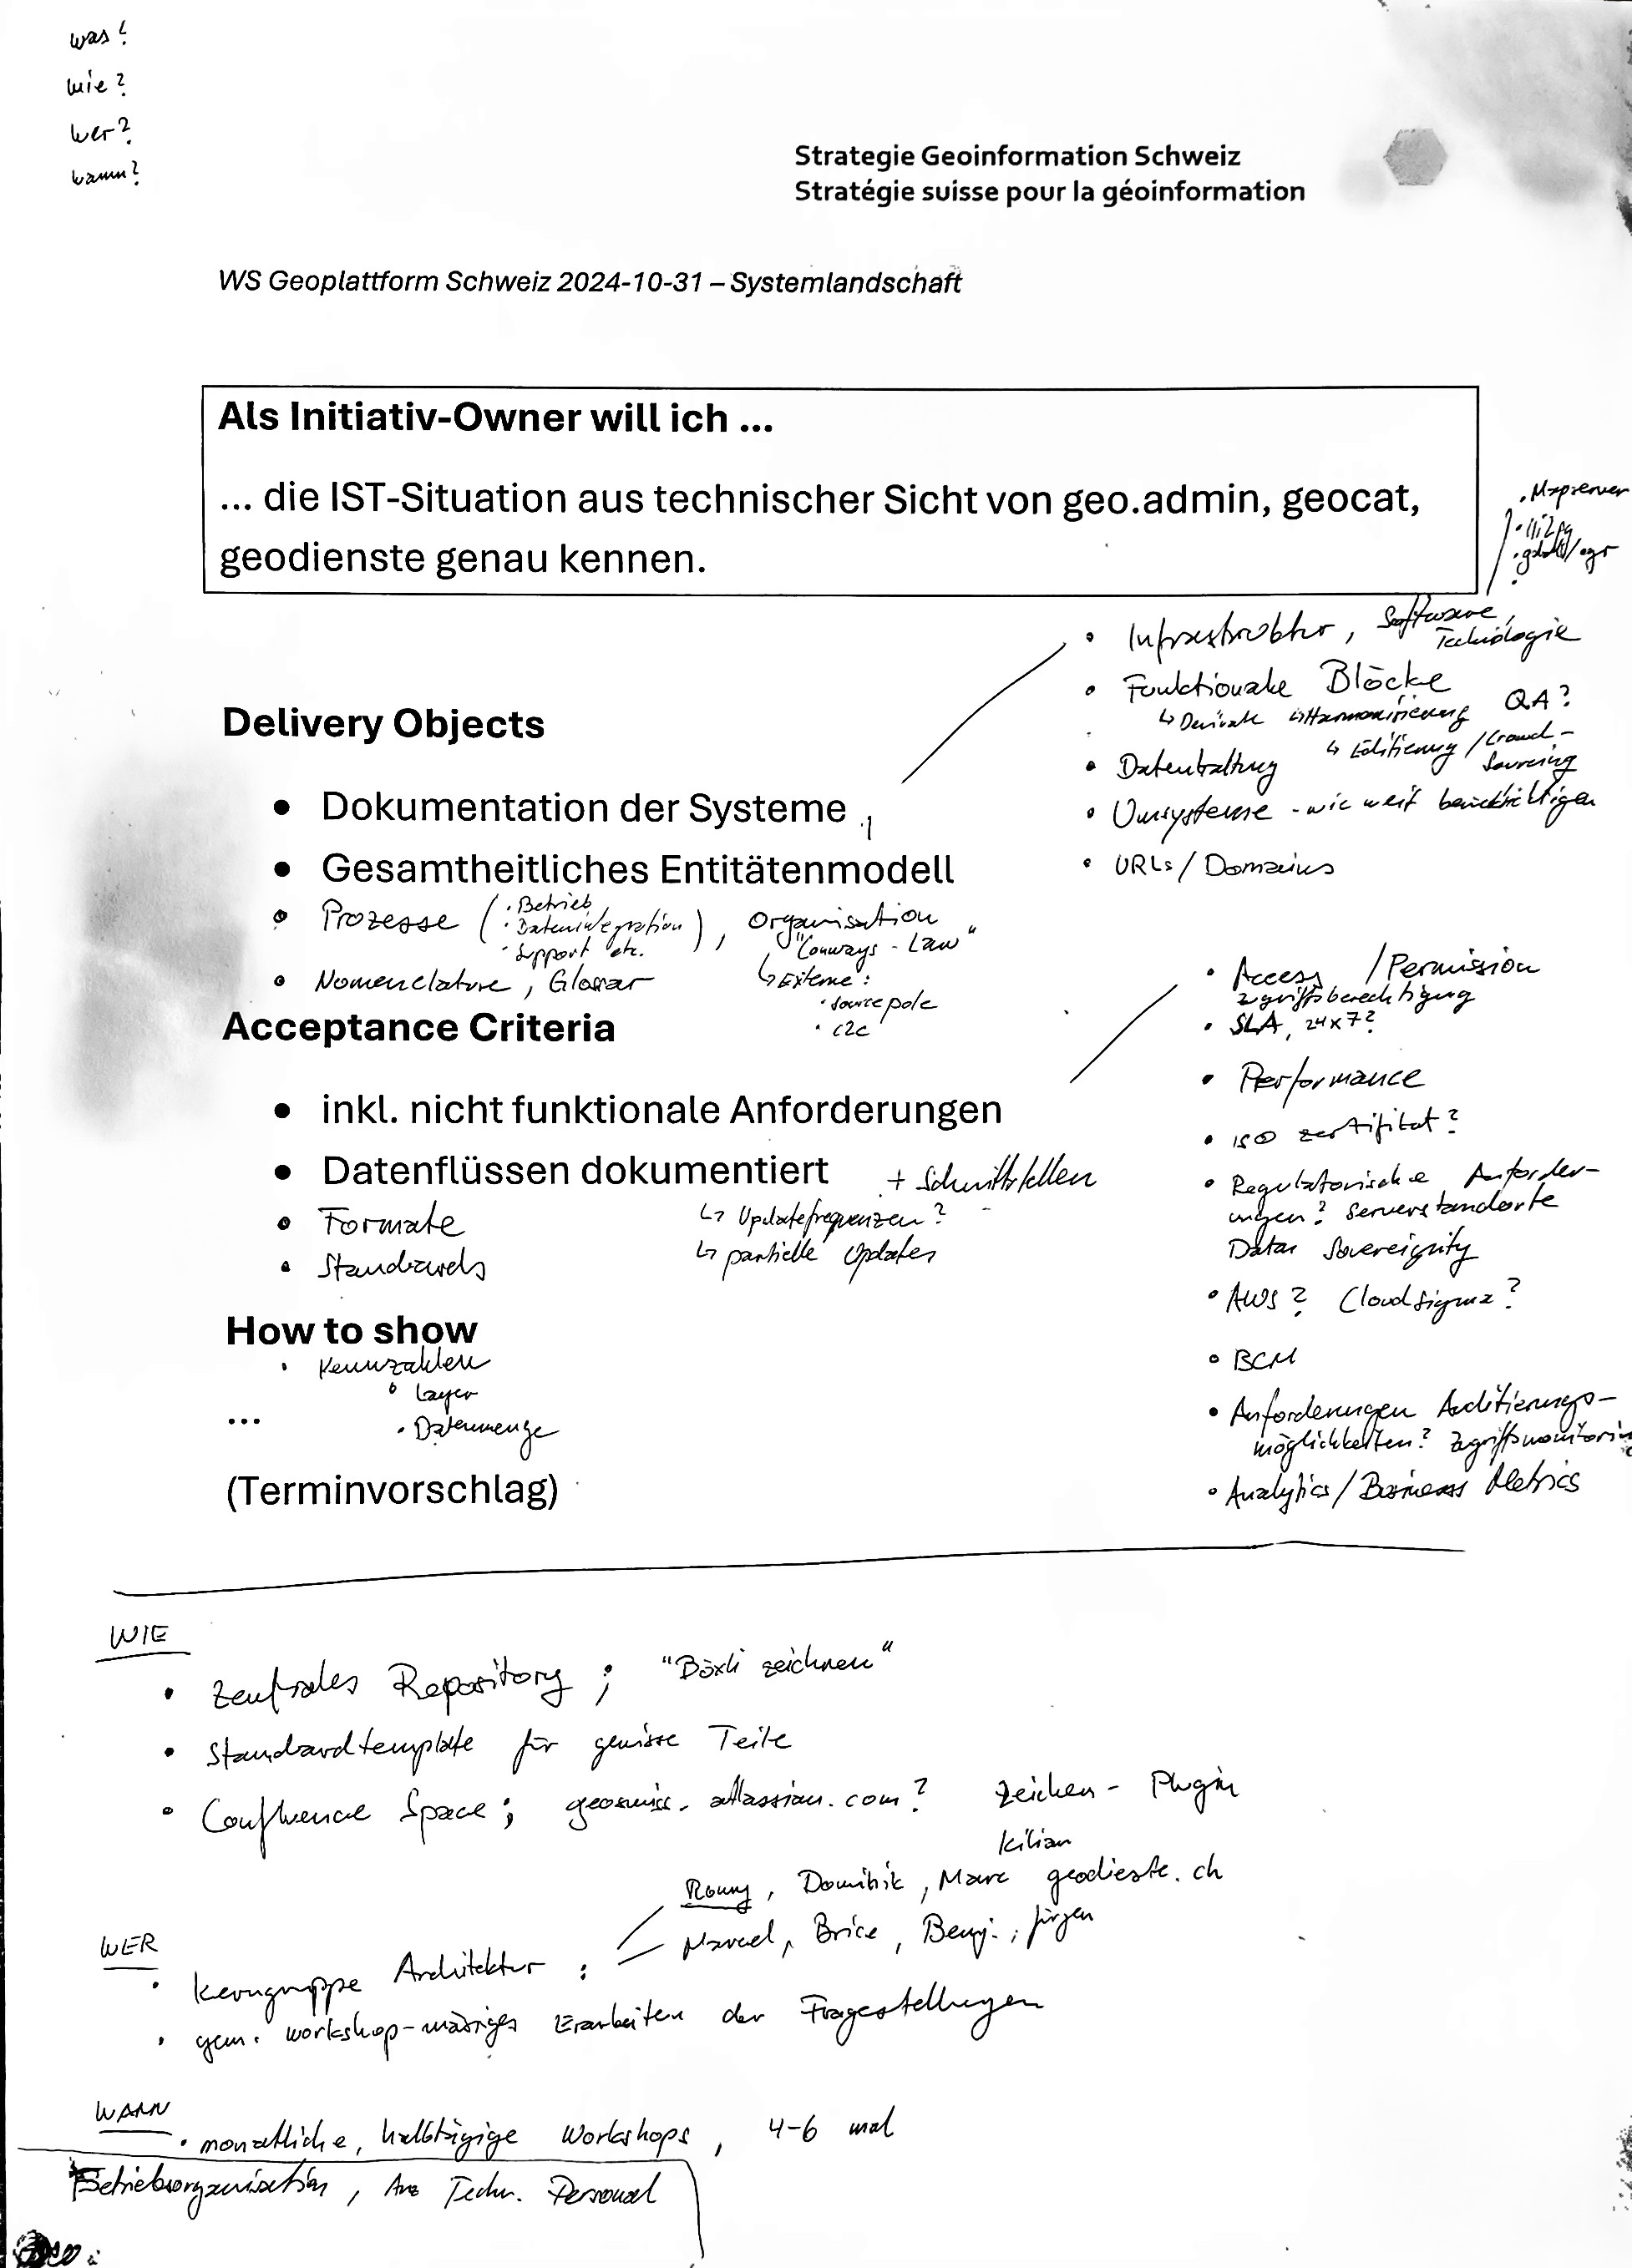 was?
wie?
wer?
wann?
Strategie Geoinformation Schweiz
Stratégie suisse pour la géoinformation
WS Geoplattform Schweiz 2024-10-31 – Systemlandschaft
Als Initiativ-Owner will ich ...
... die IST-Situation aus technischer Sicht von geo.admin, geocat,
geodienste genau kennen.
· Mapserver
· ili2pg
/ogr
• Infrastruktur, Software,
Technologie
• Funktionale Blöcke QA?
↳ Derivate ↳ Harmonisierung
↳ Editierung / Crowd-
Sourcing
• Datenhaltung
• Umsysteme - wie weit berücksichtigen
• URLs / Domains
Delivery Objects
• Dokumentation der Systeme
• Gesamtheitliches Entitätenmodell
• Prozesse (· Betrieb
· Datenintegration
· Support etc.), Organisation
"Conways-Law"
↳ Externe:
· sourcepole
· c2c
• Nomenclature, Glossar
Acceptance Criteria
• inkl. nicht funktionale Anforderungen
• Datenflüssen dokumentiert + Schnittstellen
↳ Updatefrequenzen?
↳ partielle Updates
• Formate
• Standards
• Access / Permission
Zugriffsberechtigung
• SLA, 24x7?
• Performance
• ISO Zertifikat?
• Regulatorische Anforder-
ungen? Serverstandorte
Data Sovereignity
• AWS? CloudSigma?
• BCM
• Anforderungen Auditierungs-
möglichkeiten? Zugriffsmonitorin
• Analytics / Business Metrics
How to show
• Kennzahlen
• Layer
• Datenmenge
...
(Terminvorschlag)
WIE
• Zentrales Repository; "Böxli zeichnen"
• Standardtemplate für gewisse Teile
• Confluence Space; geoswiss.atlassian.com? Zeichen-Plugin
Kilian
Romy, Dominik, Marc geodieste.ch
Marcel, Brice, Benj., Jürgen
WER
• Kerngruppe Architektur:
• gem. workshop-mässiges Erarbeiten der Fragestellungen
WANN
• monatliche, halbtägige Workshops, 4-6 mal
Betriebsorganisation, Anz Techn. Personal